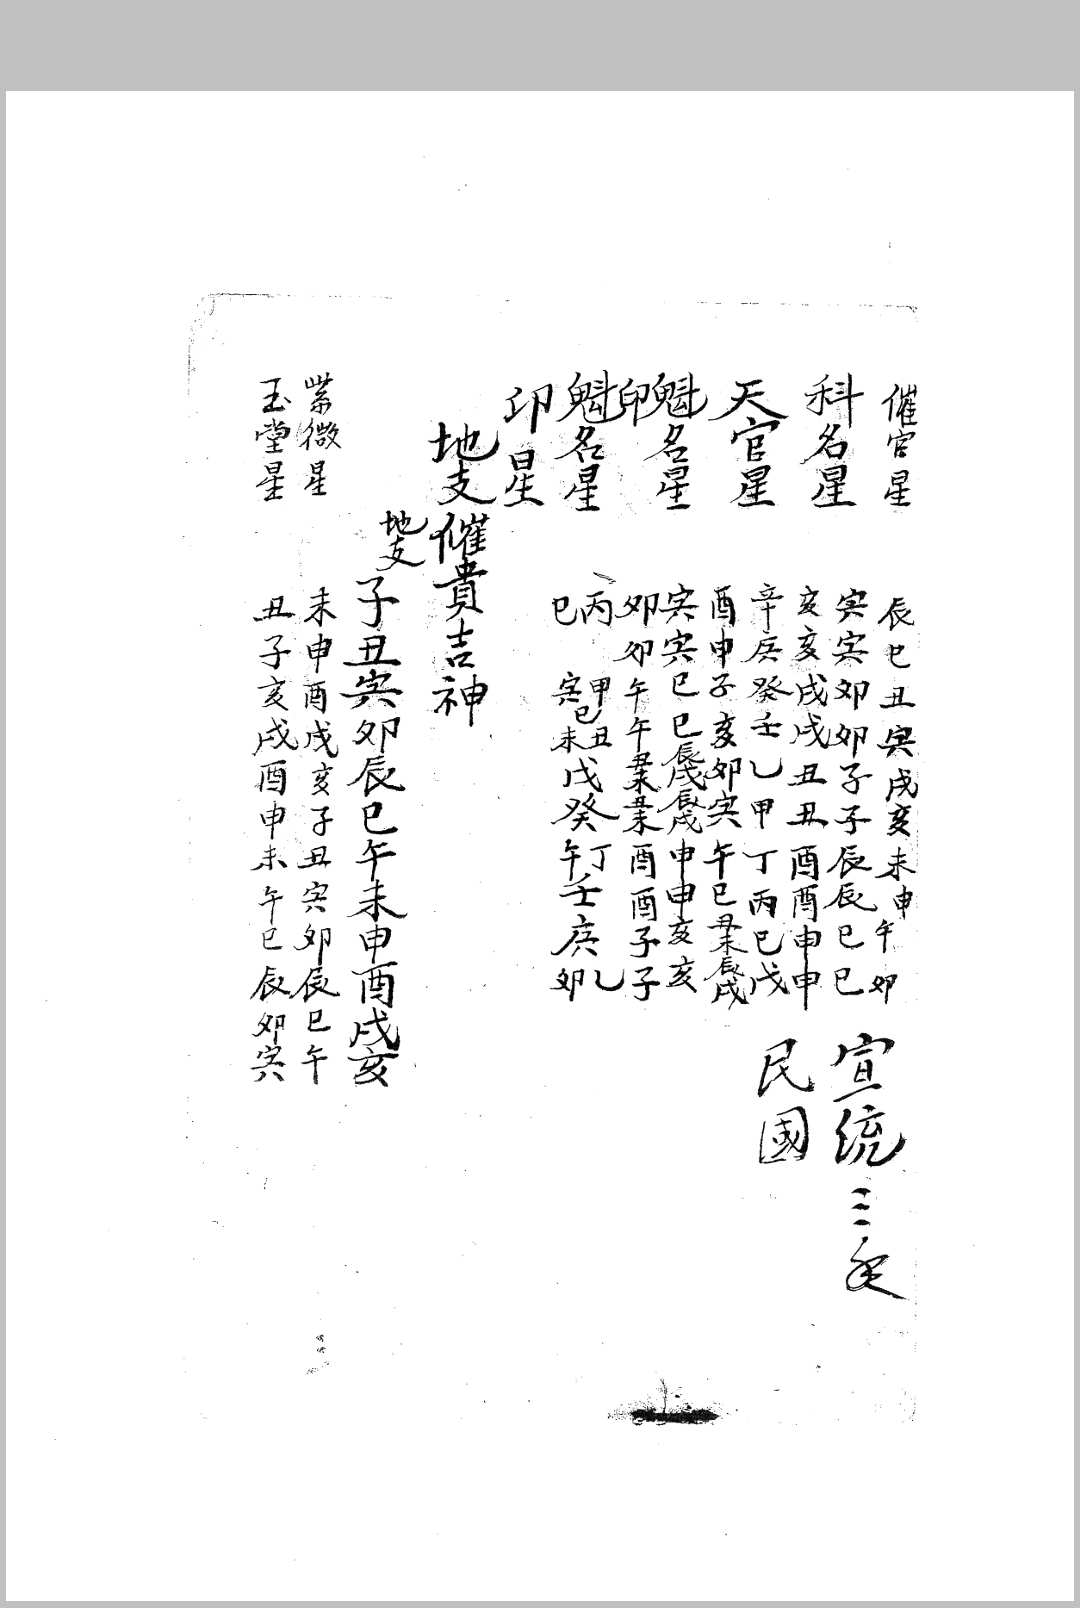 催官星 辰巳丑寅戌亥未申午卯
科名星 寅寅卯卯子子辰辰巳巳
亥亥戌戌丑丑酉酉申申
宣統三年
天官星 辛庚癸壬乙甲丁丙巳戊
民國
酉申子亥卯寅午巳丑未辰戌
魁名星 寅寅巳巳辰戌辰戌申申亥亥
印 卯卯午午丑未丑未酉酉子子
魁名星 丙甲丑戊癸丁壬庚乙
印星 巳寅巳未午卯
地支催貴吉神
地支 子丑寅卯辰巳午未申酉戌亥
紫微星 未申酉戌亥子丑寅卯辰巳午
玉堂星 丑子亥戌酉申未午巳辰卯寅